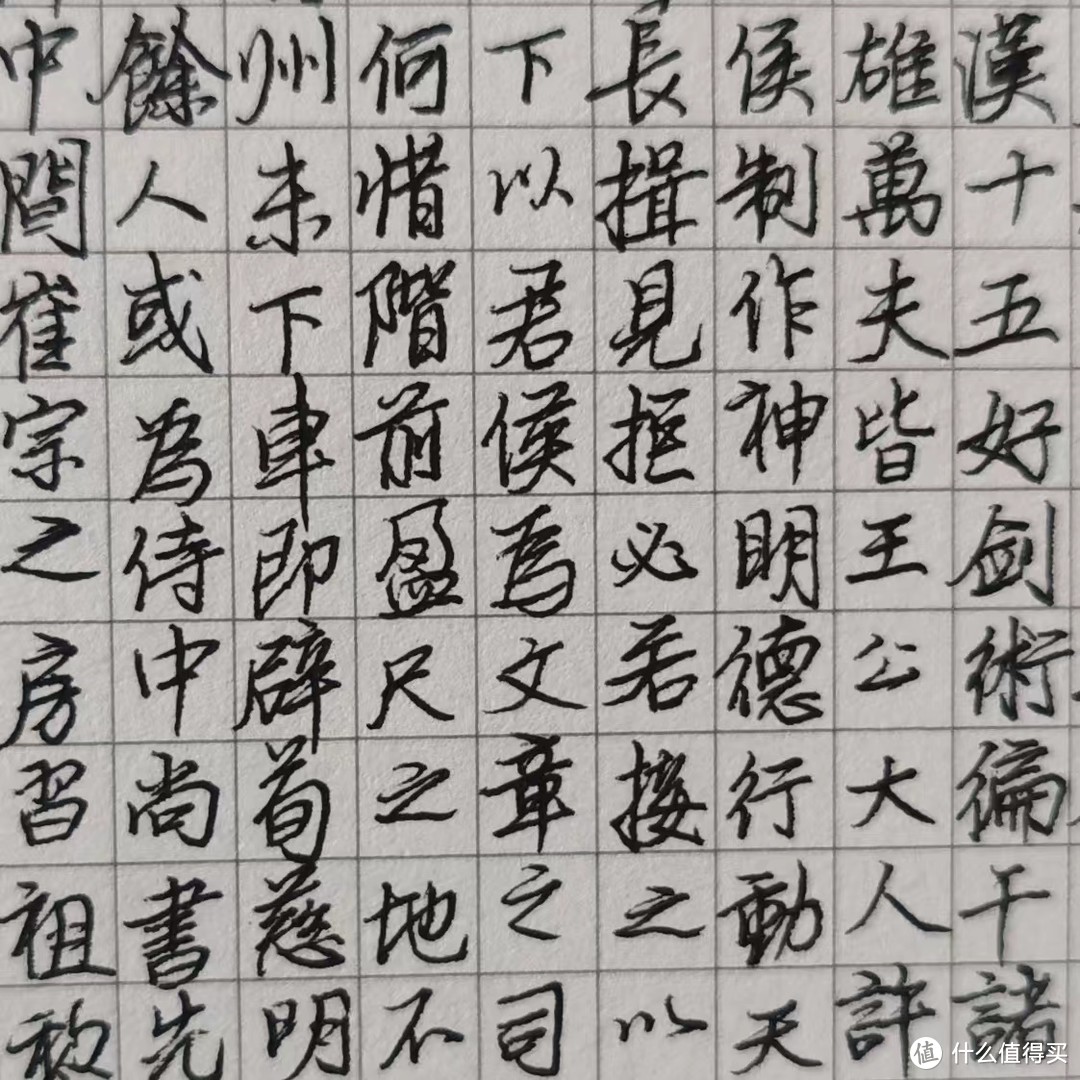 漢十五好劍術徧干諸
雄萬夫皆王公大人許
侯制作神明德行動天
長揖見拒必若接之以
下以君侯為文章之司
何惜階前盈尺之地不
州未下車即辟荀慈明
餘人或為侍中尚書先
中間崔宗之房習祖
值 什么值得买